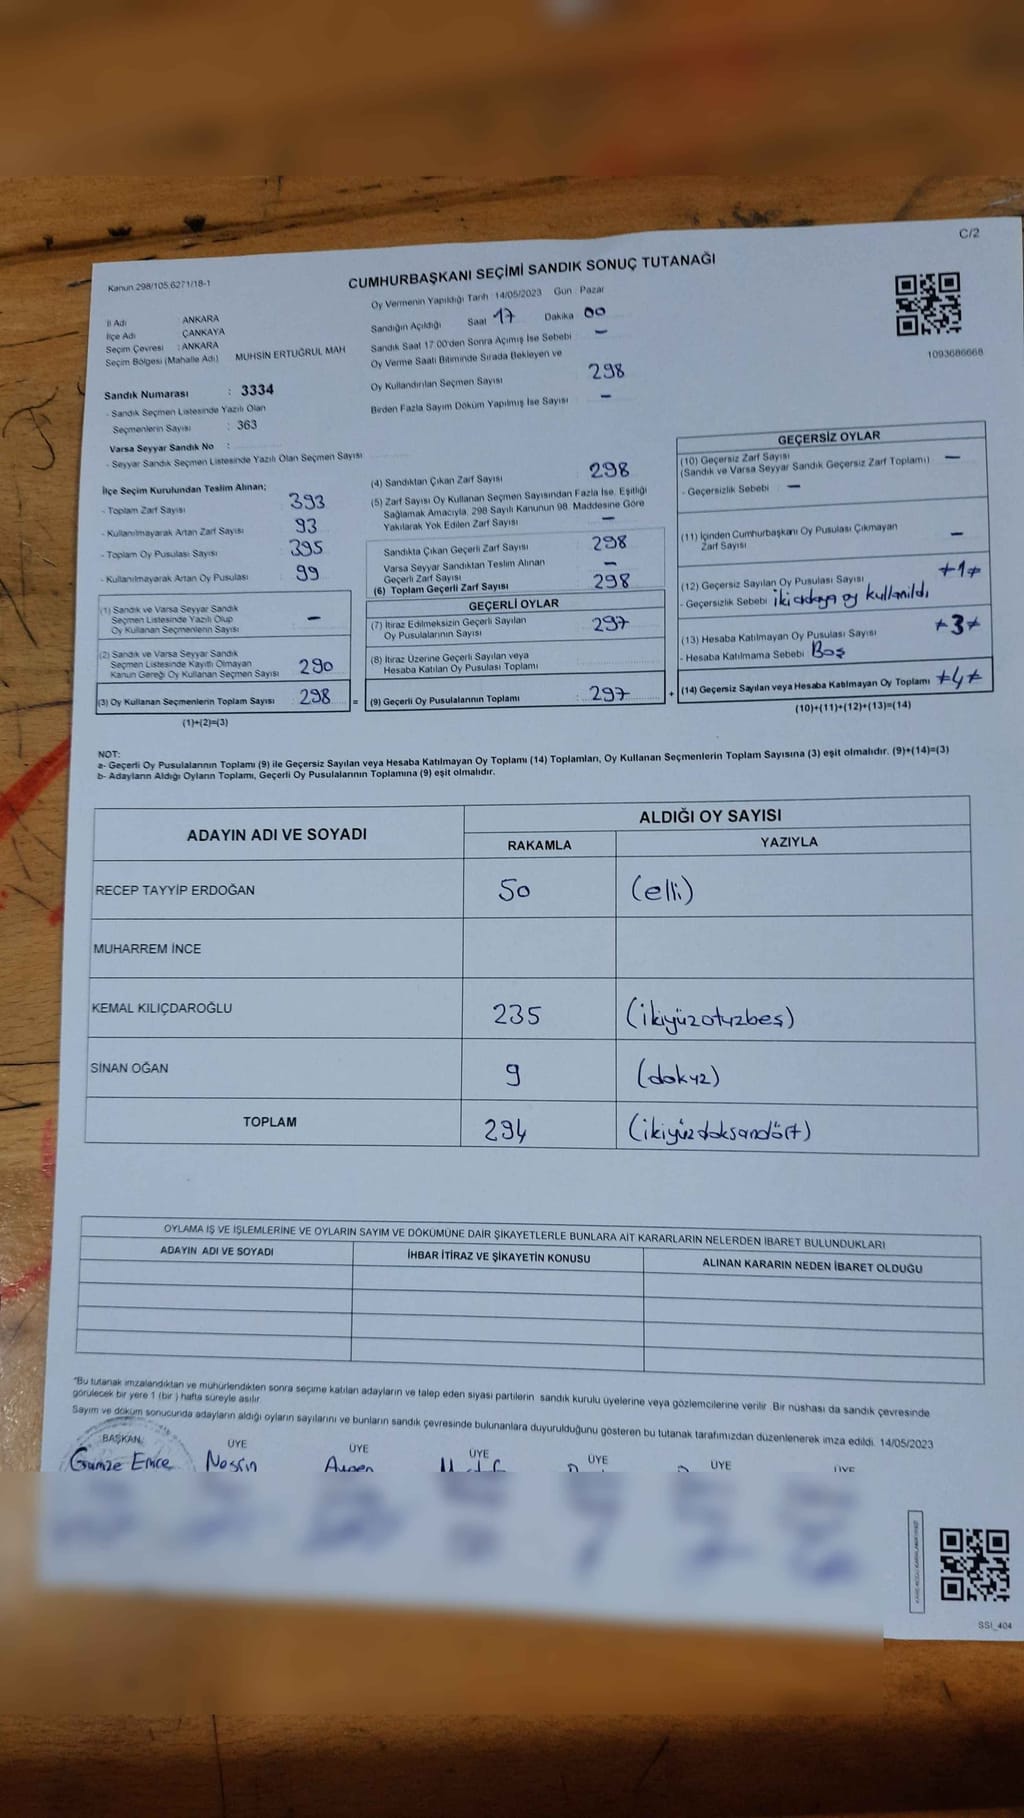 C/2
Kanun.298/105,6271/18-1
CUMHURBAŞKANI SEÇİMİ SANDIK SONUÇ TUTANAĞI
Oy Vermenin Yapıldığı Tarih : 14/05/2023 Gün : Pazar
İl Adı : ANKARA
İlçe Adı : ÇANKAYA
Seçim Çevresi : ANKARA
Seçim Bölgesi (Mahalle Adı) MUHSİN ERTUĞRUL MAH
Sandık Numarası : 3334
- Sandık Seçmen Listesinde Yazılı Olan
Seçmenlerin Sayısı : 363
Varsa Seyyar Sandık No :
- Seyyar Sandık Seçmen Listesinde Yazılı Olan Seçmen Sayısı
Sandığın Açıldığı Saat 17 Dakika 00
Sandık Saat 17:00'den Sonra Açımış İse Sebebi —
Oy Verme Saati Bitiminde Sırada Bekleyen ve
Oy Kullandırılan Seçmen Sayısı 298
Birden Fazla Sayım Döküm Yapılmış İse Sayısı —
1093686668
İlçe Seçim Kurulundan Teslim Alınan;
- Toplam Zarf Sayısı : 393
- Kullanılmayarak Artan Zarf Sayısı : 93
- Toplam Oy Pusulası Sayısı : 395
- Kullanılmayarak Artan Oy Pusulası : 99
(1) Sandık ve Varsa Seyyar Sandık
Seçmen Listesinde Yazılı Olup
Oy Kullanan Seçmenlerin Sayısı —
(2) Sandık ve Varsa Seyyar Sandık
Seçmen Listesinde Kayıtlı Olmayan
Kanun Gereği Oy Kullanan Seçmen Sayısı 290
(3) Oy Kullanan Seçmenlerin Toplam Sayısı : 298 =
(1)+(2)=(3)
(4) Sandıktan Çıkan Zarf Sayısı 298
(5) Zarf Sayısı Oy Kullanan Seçmen Sayısından Fazla İse, Eşitliği
Sağlamak Amacıyla, 298 Sayılı Kanunun 98. Maddesine Göre
Yakılarak Yok Edilen Zarf Sayısı —
Sandıkta Çıkan Geçerli Zarf Sayısı : 298
Varsa Seyyar Sandıktan Teslim Alınan
Geçerli Zarf Sayısı —
(6) Toplam Geçerli Zarf Sayısı : 298
GEÇERLİ OYLAR
(7) İtiraz Edilmeksizin Geçerli Sayılan
Oy Pusulalarının Sayısı 297
(8) İtiraz Üzerine Geçerli Sayılan veya
Hesaba Katılan Oy Pusulası Toplamı
(9) Geçerli Oy Pusulalarının Toplamı : 297 +
GEÇERSİZ OYLAR
(10) Geçersiz Zarf Sayısı
(Sandık ve Varsa Seyyar Sandık Geçersiz Zarf Toplamı) —
- Geçersizlik Sebebi —
(11) İçinden Cumhurbaşkanı Oy Pusulası Çıkmayan
Zarf Sayısı —
(12) Geçersiz Sayılan Oy Pusulası Sayısı ≠1≠
- Geçersizlik Sebebi iki adaya oy kullanıldı
(13) Hesaba Katılmayan Oy Pusulası Sayısı ≠3≠
- Hesaba Katılmama Sebebi : Boş
(14) Geçersiz Sayılan veya Hesaba Katılmayan Oy Toplamı ≠4≠
(10)+(11)+(12)+(13)=(14)
NOT:
a- Geçerli Oy Pusulalarının Toplamı (9) ile Geçersiz Sayılan veya Hesaba Katılmayan Oy Toplamı (14) Toplamları, Oy Kullanan Seçmenlerin Toplam Sayısına (3) eşit olmalıdır. (9)+(14)=(3)
b- Adayların Aldığı Oyların Toplamı, Geçerli Oy Pusulalarının Toplamına (9) eşit olmalıdır.
ADAYIN ADI VE SOYADI
ALDIĞI OY SAYISI
RAKAMLA YAZIYLA
RECEP TAYYİP ERDOĞAN 50 (elli)
MUHARREM İNCE
KEMAL KILIÇDAROĞLU 235 (ikiyüzotuzbeş)
SİNAN OĞAN 9 (dokuz)
TOPLAM 294 (ikiyüzdoksandört)
OYLAMA İŞ VE İŞLEMLERİNE VE OYLARIN SAYIM VE DÖKÜMÜNE DAİR ŞİKAYETLERLE BUNLARA AİT KARARLARIN NELERDEN İBARET BULUNDUKLARI
ADAYIN ADI VE SOYADI İHBAR İTİRAZ VE ŞİKAYETİN KONUSU ALINAN KARARIN NEDEN İBARET OLDUĞU
*Bu tutanak imzalandıktan ve mühürlendikten sonra seçime katılan adayların ve talep eden siyasi partilerin sandık kurulu üyelerine veya gözlemcilerine verilir. Bir nüshası da sandık çevresinde
görülecek bir yere 1 (bir ) hafta süreyle asılır.
Sayım ve döküm sonucunda adayların aldığı oyların sayılarını ve bunların sandık çevresinde bulunanlara duyurulduğunu gösteren bu tutanak tarafımızdan düzenlenerek imza edildi. 14/05/2023
BAŞKAN ÜYE ÜYE ÜYE ÜYE ÜYE ÜYE
SSI_404